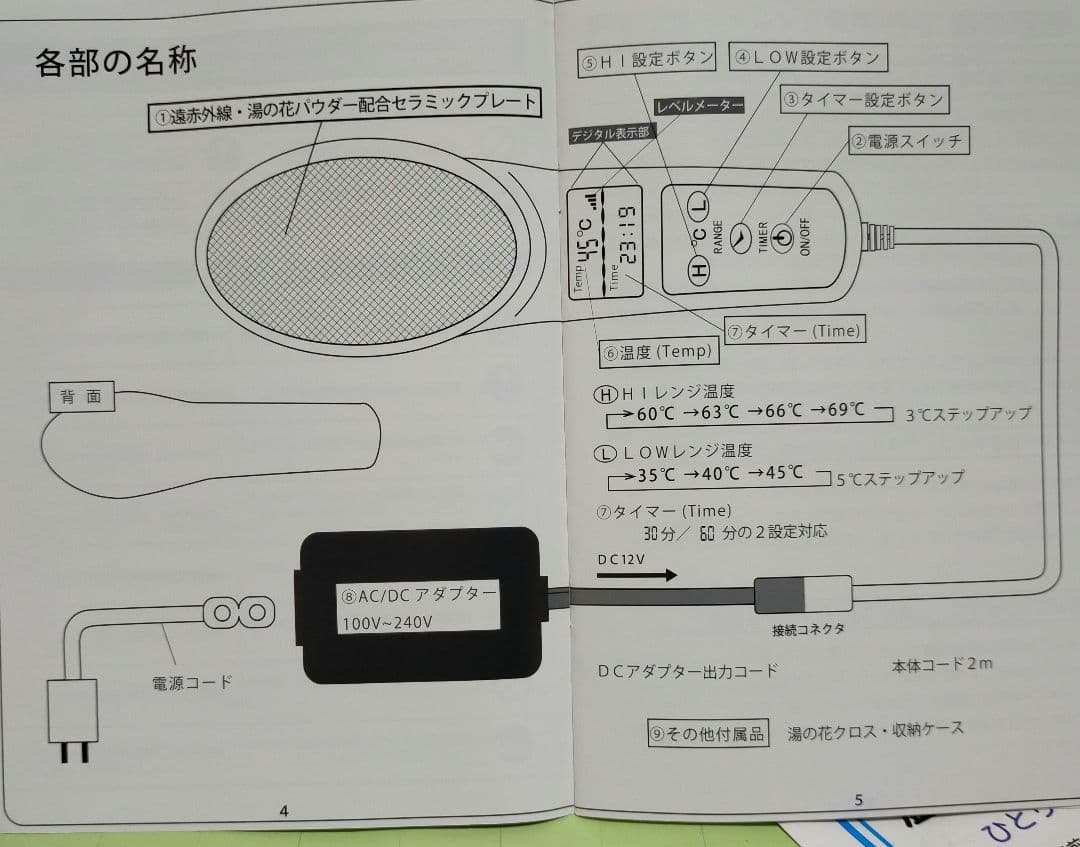 各部の名称
①遠赤外線・湯の花パウダー配合セラミックプレート
背 面
⑧AC/DC アダプター
100V~240V
電源コード
4
⑤HI設定ボタン
④LOW設定ボタン
レベルメーター
③タイマー設定ボタン
デジタル表示部
②電源スイッチ
Temp 45℃
Time 23:19
H ℃ L
RANGE
TIMER
ON/OFF
⑦タイマー (Time)
⑥温度 (Temp)
Ⓗ HIレンジ温度
→60℃ →63℃ →66℃ →69℃ 3℃ステップアップ
Ⓛ LOWレンジ温度
→35℃ →40℃ →45℃ 5℃ステップアップ
⑦タイマー (Time)
30分／ 60 分の2設定対応
DC12V
接続コネクタ
DCアダプター出力コード
本体コード2m
⑨その他付属品 湯の花クロス・収納ケース
5